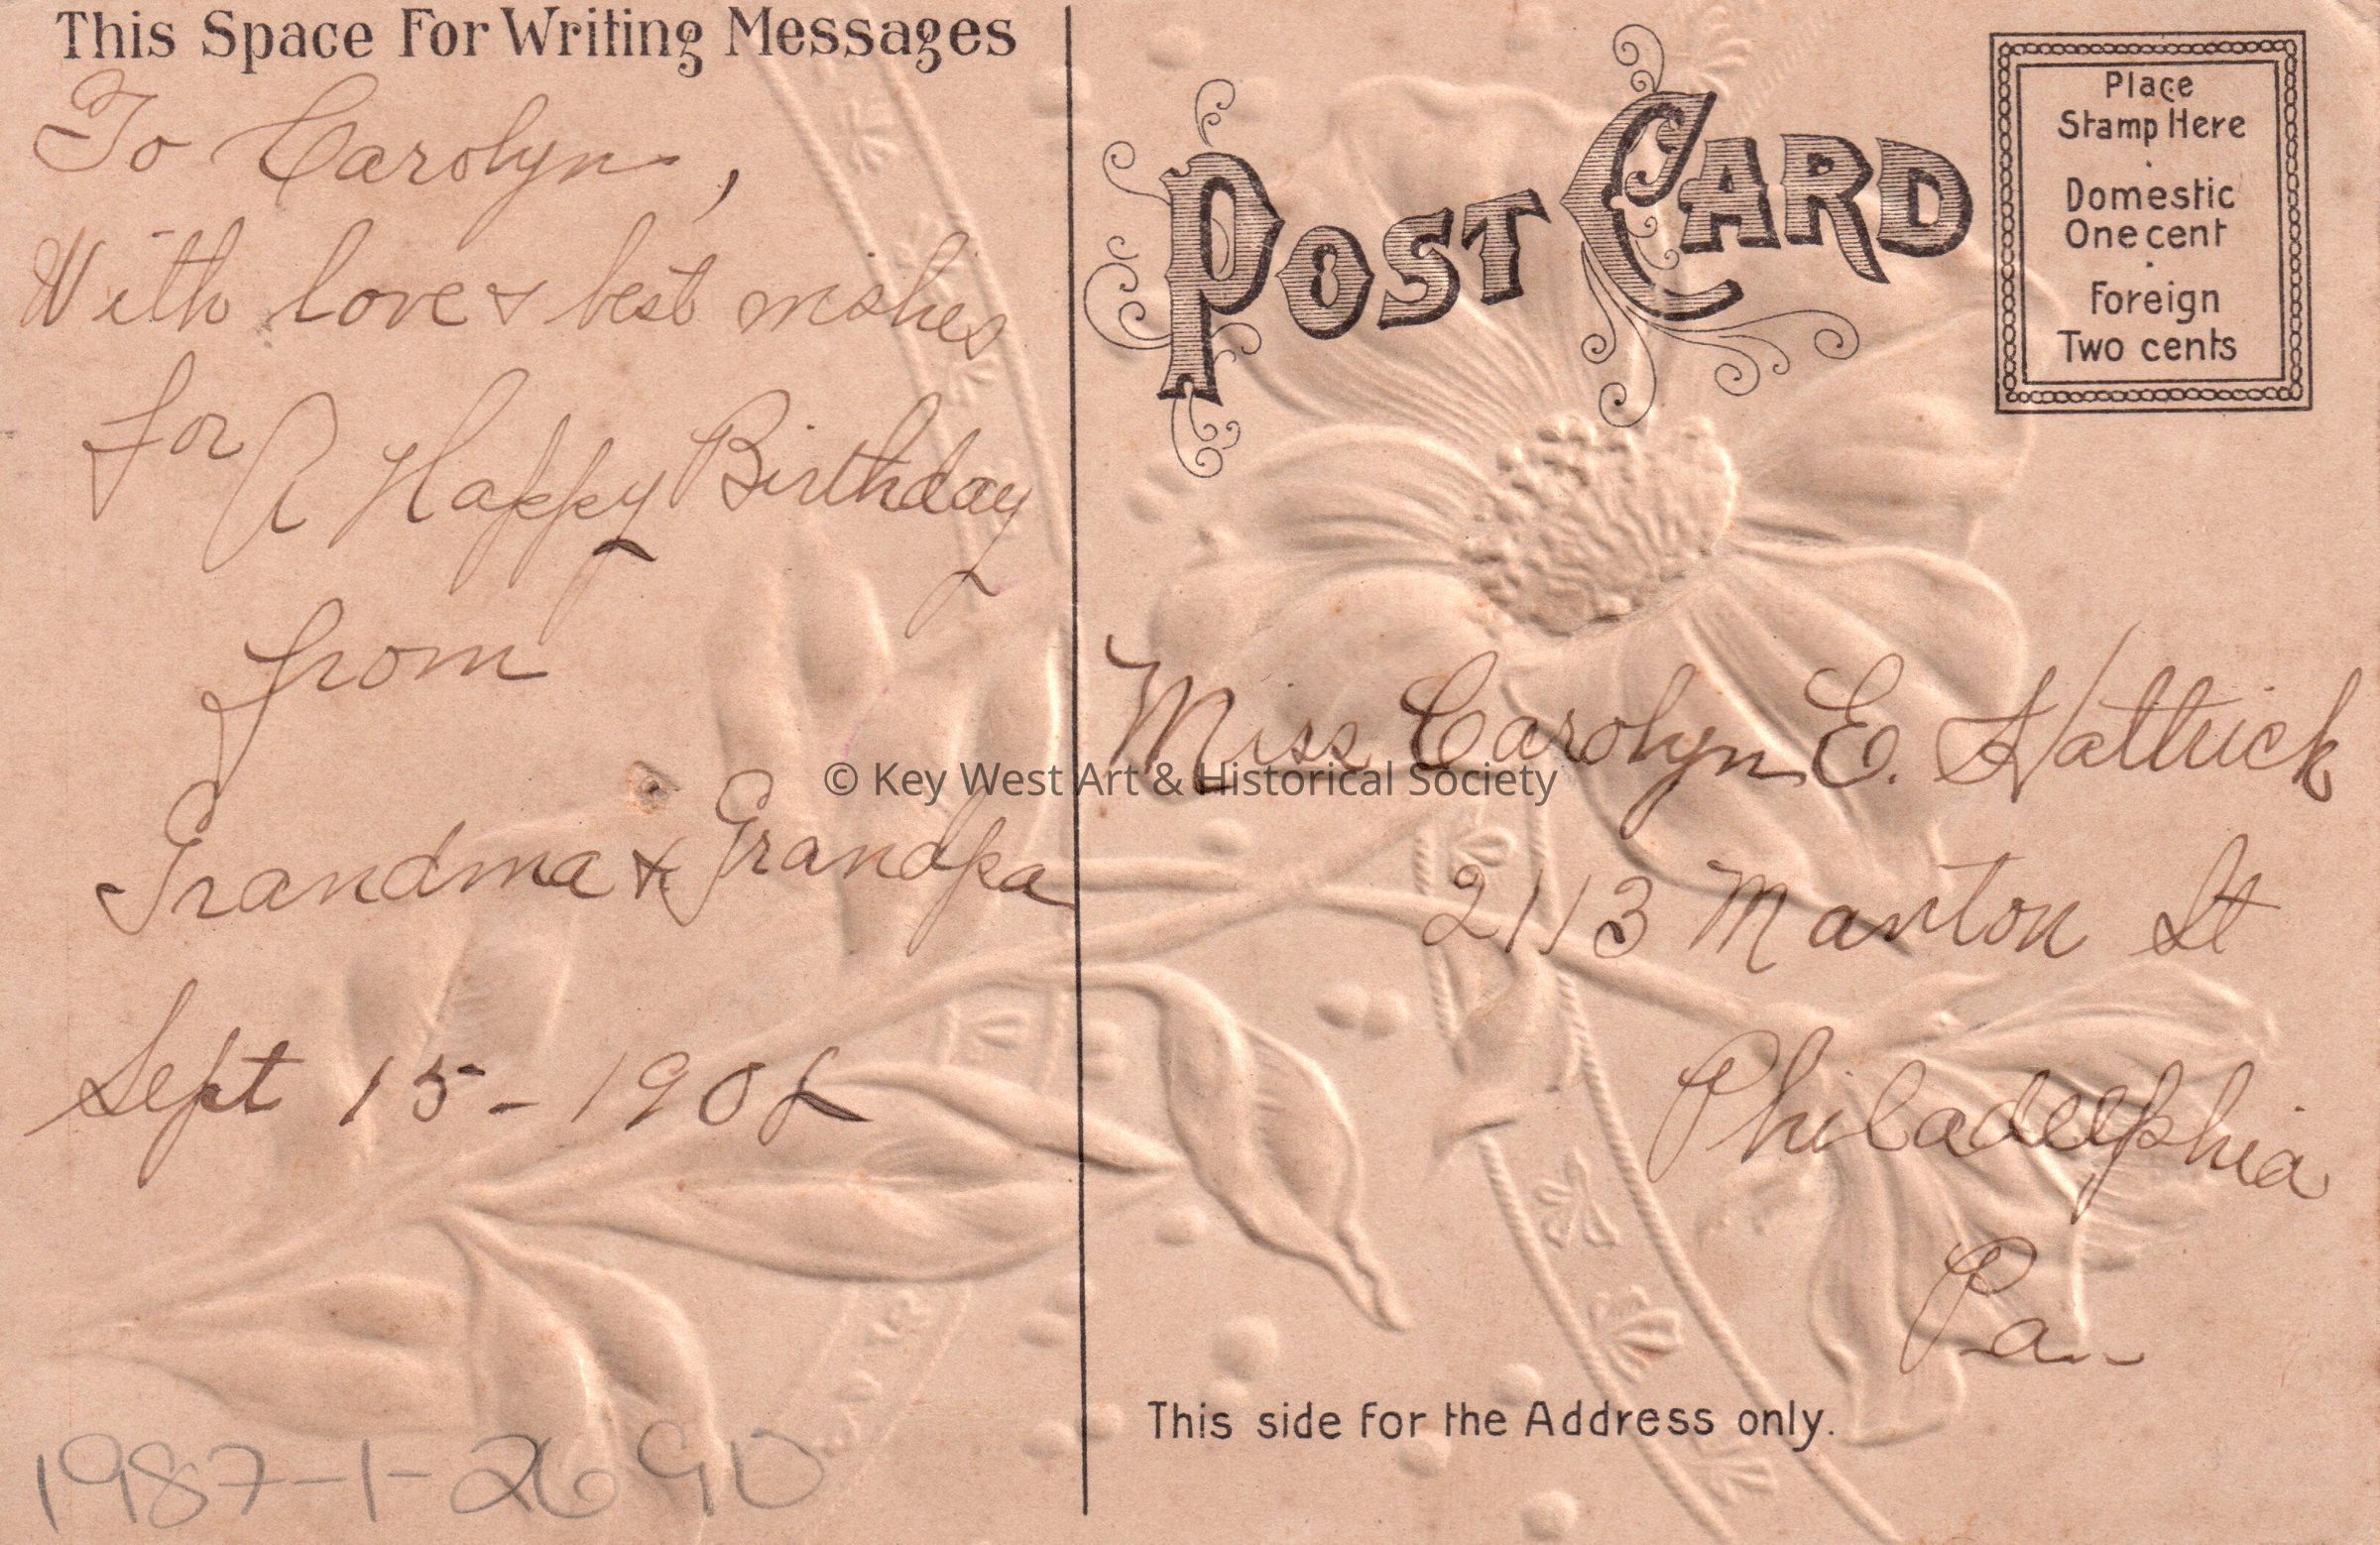 This Space For Writing Messages
To Carolyn,
With love & best wishes
for
A Happy Birthday
from
Grandma & Grandpa
Sept 15 - 190
POST CARD
Place
Stamp Here
Domestic
One cent
Foreign
Two cents
Miss Carolyn E. Hattrick
2113 Manton St
Philadelphia
Pa.
This side for the Address only.
© Key West Art & Historical Society
1987-1-2690